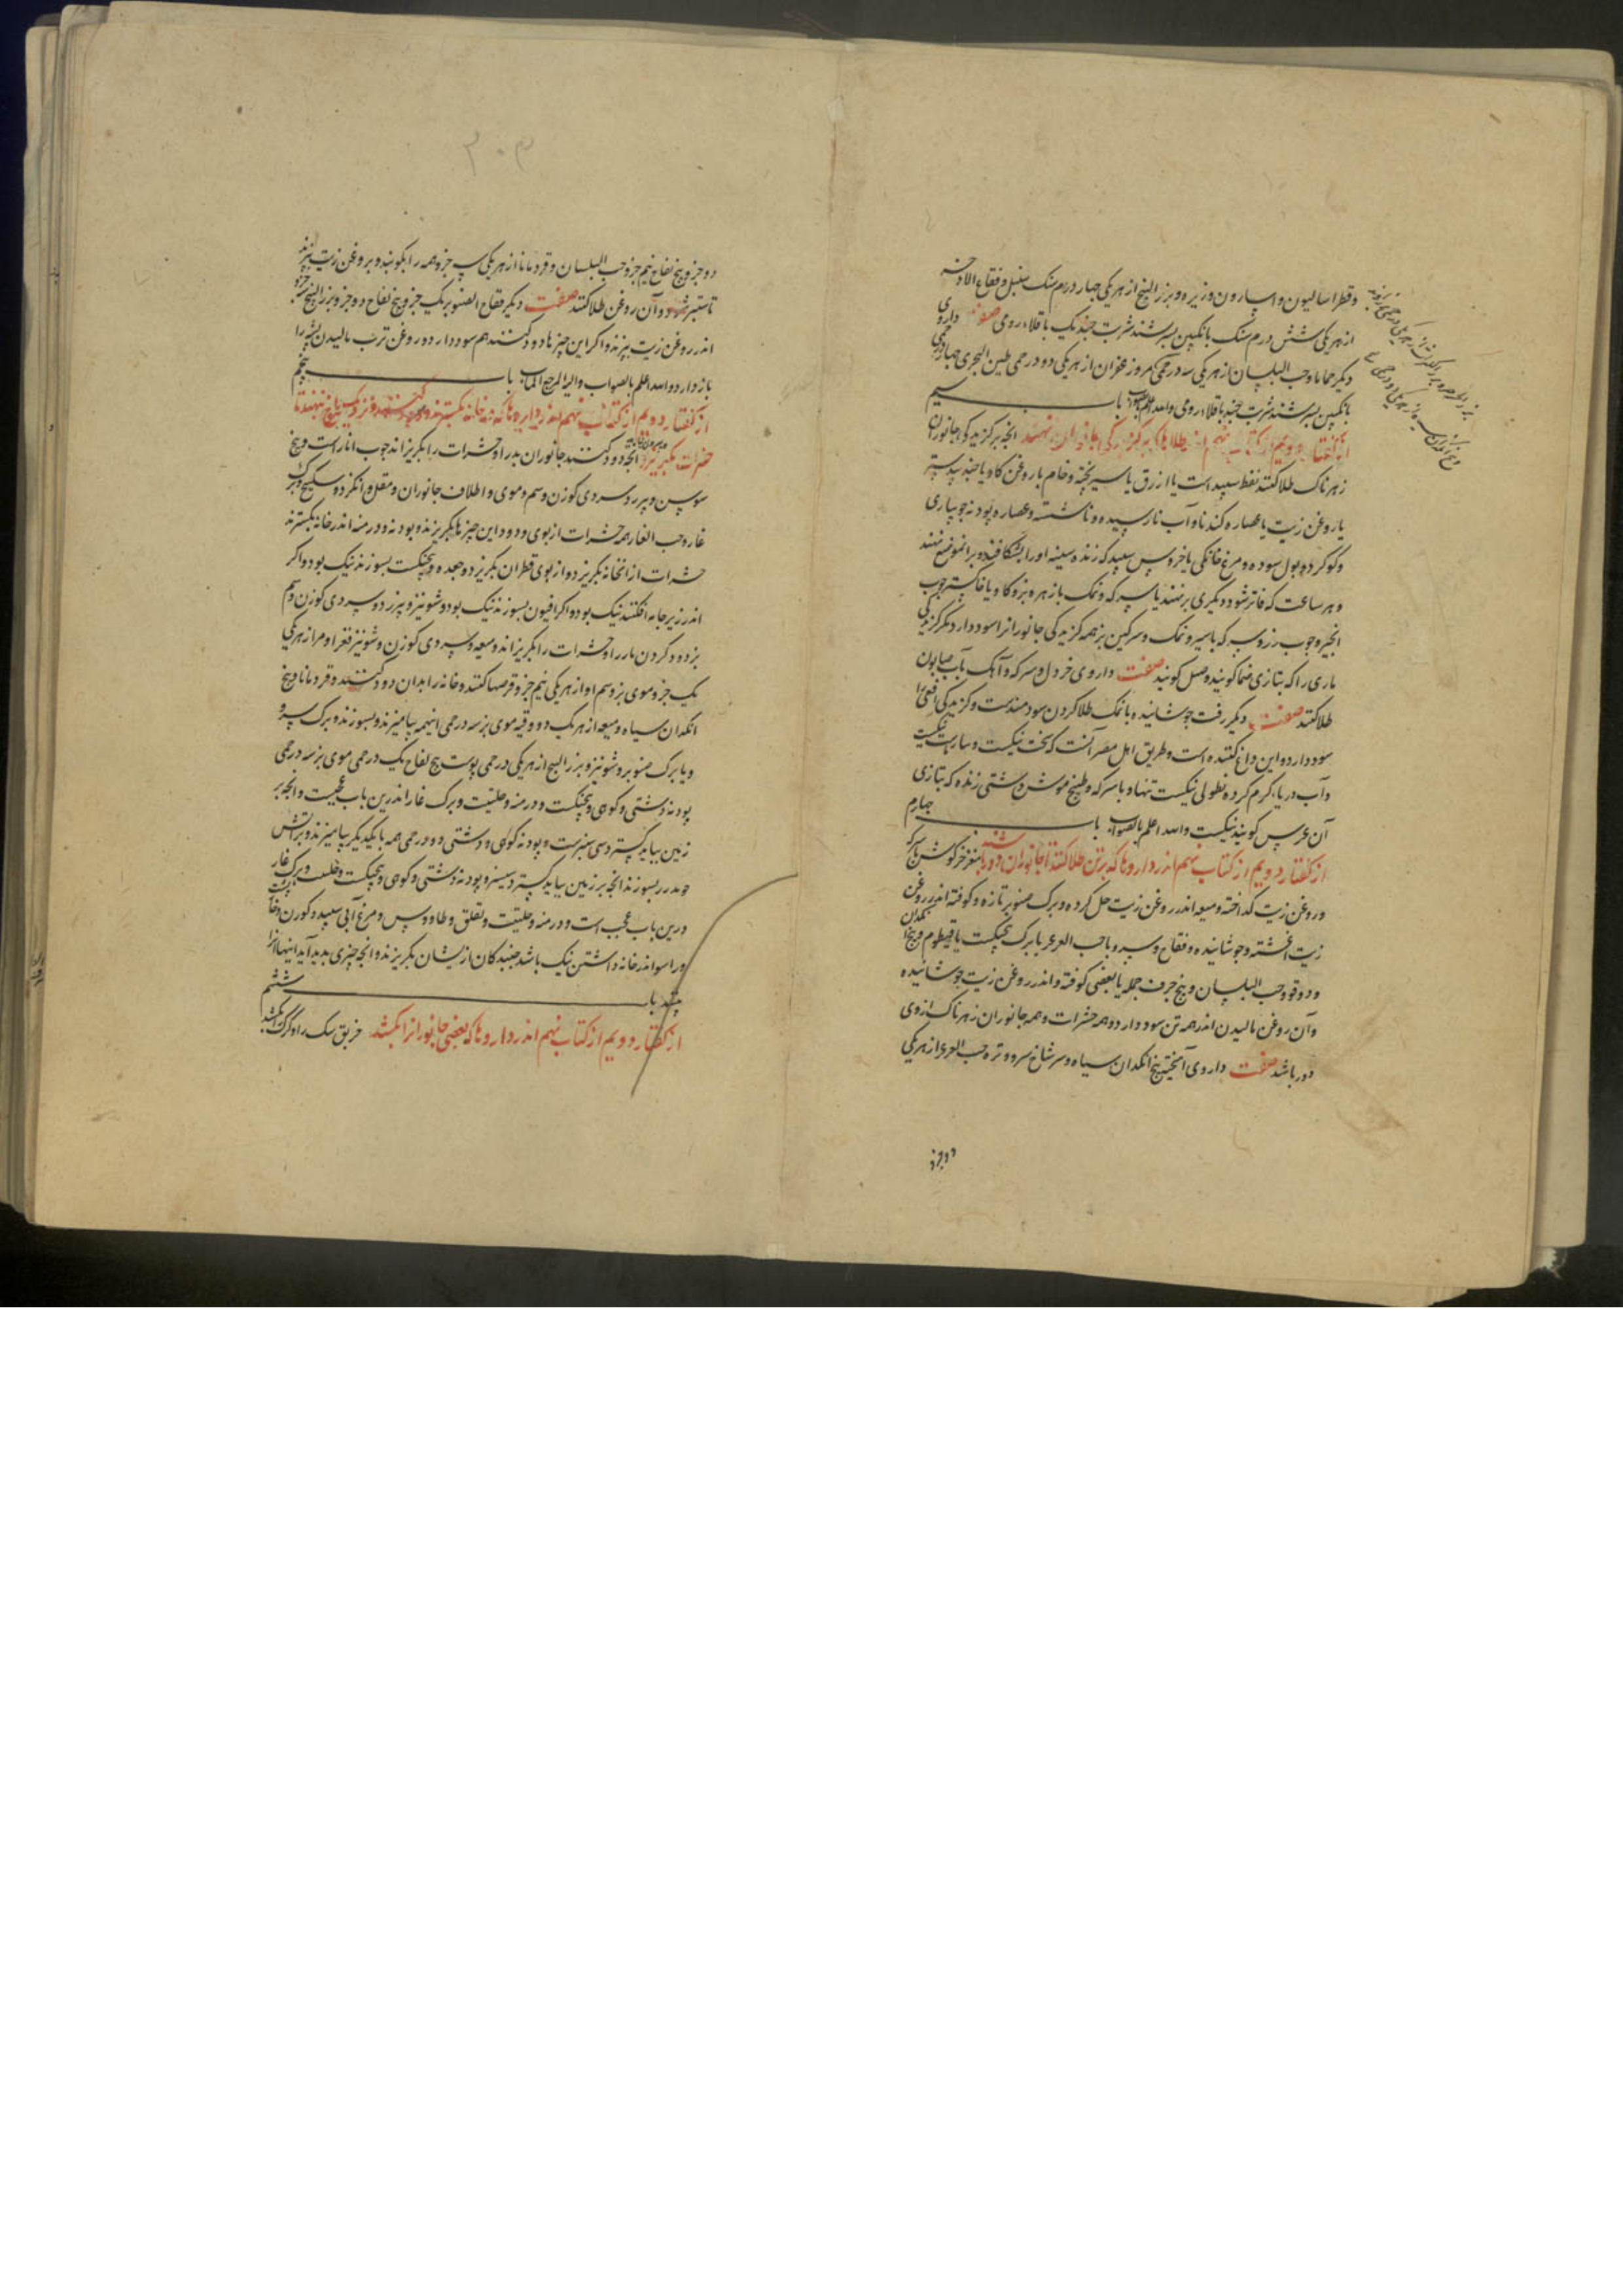 وقطراسالیون واسارون وزیره وبزر البنج از هر یکی چهار درم سنک سنبل وفقاح الاذخر
از هر یکی شش درم سنک بانکبین بسرشند شربت چند یک باقلاء رومی صفت داروی
دیکر حماما وحب البلسان از هر یکی سه درمی مر وزعفران از هر یکی دو درمی طین البحری چهار درمی
بانکبین بسرشند شربت چند باقلاء رومی والله اعلم بالصواب باب سیم
از کفتار دویم از کتاب نهم اندر طلاها که بر کزیدکی جانوران نهند انچه بر کزیدکی جانوران
زهرناک طلا کنند نفط سپید است یا ازرق یا سیر پخته وخام با روغن کاو یا جند بیدستر
با روغن زیت یا عصاره کندنا وآب نارسیده وناشسته وعصاره پودنه جویباری
وکوکرد وبول سوده ومرغ خانکی یا خروس سپید که زنده سینه او را بشکافند وبر انموضع نهند
وهر ساعت که فاتر شود دیکری بر نهند یا سرکه ونمک با زهره بز وکاو یا خاکستر چوب
انجیر وچوب رز وسرکه یا سیر ونمک وسرکین بز همه کزیدکی جانوران را سود دارد دیکر کزیدکی
ماری را که بتازی صما کویند وصل کویند صفت داروی خردل وسرکه وآهک بآب صابون
طلا کنند صفت دیکر زفت جوشانیده با نمک طلا کردن سودمندست وکزیدکی افعی را
سود دارد واین داغ کننده است وطریق اهل مصر آنست که سخت نیکست
وآب دریا کرم کرده نطولی نیکست تنها وبا سرکه وطبیخ موش دشتی زنده که بتازی
آن عرس کویند نیکست والله اعلم بالصواب باب چهارم
از کفتار دویم از کتاب نهم اندر داروها که بر تن طلا کنند تا جانوران دور باشند مغز خرکوش با سرکه
وروغن زیت کداخته ومیعه اندر روغن زیت حل کرده وبرک صنوبر تازه وکوفته اندر روغن
زیت اغشته وجوشانیده وفقاح وسرو یا حب العرعر یا برک پنجنکشت یا قیطوم وبیخ انکدان
ودوقو وحب البلسان وبیخ حرف جمله یا بعضی کوفته واندر روغن زیت جوشانیده
وآن روغن مالیدن اندر همه تن سود دارد وهمه حشرات وهمه جانوران زهرناک از وی
دور باشد صفت داروی آمیخته بیخ انکدان سیاه وسر شاخ سرو وتره حب العرعر از هر یکی
دو جزو
۲۰۳
دو جزو وبیخ تفاح نیم جزو حب البلسان وقردمانا از هر یکی سه جزو همه را بکوبند وبروغن زیت بپزند
تا ستبر شود وآن روغن طلا کنند صفت دیکر فقاح الصنوبر یک جزو بیخ تفاح دو جزو بزر البنج جزو
اندر روغن زیت بپزند واکر این چیزها دود کنند هم سود دارد وروغن ترب مالیدن پشه را
باز دارد والله اعلم بالصواب والیه المرجع والماب باب پنجم
از کفتار دویم از کتاب نهم اندر داروها که در خانه بکسترند ودود کنند ونزدیک چراغ نهند تا
حشرات بکریزند انچه دود کنند جانوران بد را وحشرات را بکریزاند چوب انارست وبیخ
سوسن وپیرد وسروی کوزن وسم وموی واظلاف جانوران ومقل وانکزد وسکبینج وبرک
غار وحب الغار همه حشرات از بوی ودود این چیزها بکریزند وپودنه ودرمنه اندر خانه بکسترند
حشرات از انخانه بکریزد واز بوی قطران بکریزد وجعده وپنجنکشت بسوزند نیک بود واکر
اندر زیر جامه افکنند نیک بود واکر افیون بسوزند نیک بود وشونیز وپیرزد وسروی کوزن وسم
بز دود کردن مار را وحشرات را بکریزاند ومیعه وسروی کوزن وشونیز وقفر او مر از هر یکی
یک جزو وموی بز وسم او از هر یکی نیم جزو قرصها کنند وخانه را بدان دود کنند وقردمانا وبیخ
انکدان سیاه ومیعه از هر یک دو وقیه موی بز سه درمی اینهمه بیامیزند وبسوزند وبرک سرو
ویا برک صنوبر وشونیز وبزر البنج از هر یکی درمی پوست بیخ تفاح یک درمی موی بز سه درمی
پودنه دشتی وکوهی وپنجنکشت ودرمنه وحلتیت وبرک غار اندرین باب عجبست وانچه بر
زمین بباید کسترد سی سنبرست وپودنه کوهی ودشتی دو درمی همه با یکدیکر بیامیزند وبر آتش
بسوزند انچه بر زمین بباید کسترد سیسنبر وپودنه دشتی وکوهی وپنجنکشت وحلتیت وبرک غار
درین باب عجب است ودرمنه وحلتیت ولقلق وطاووس ومرغ آبی سپید وکوزن وخارپشت
وراسو اندر خانه داشتن نیک باشد جنبندکان از یشان بکریزند وانچه چیزی بدید آید اینها انرا
بکشند باب ششم
از کفتار دویم از کتاب نهم اندر داروها که بعضی جانوران را بکشد خربق سک را وکرک را بکشد